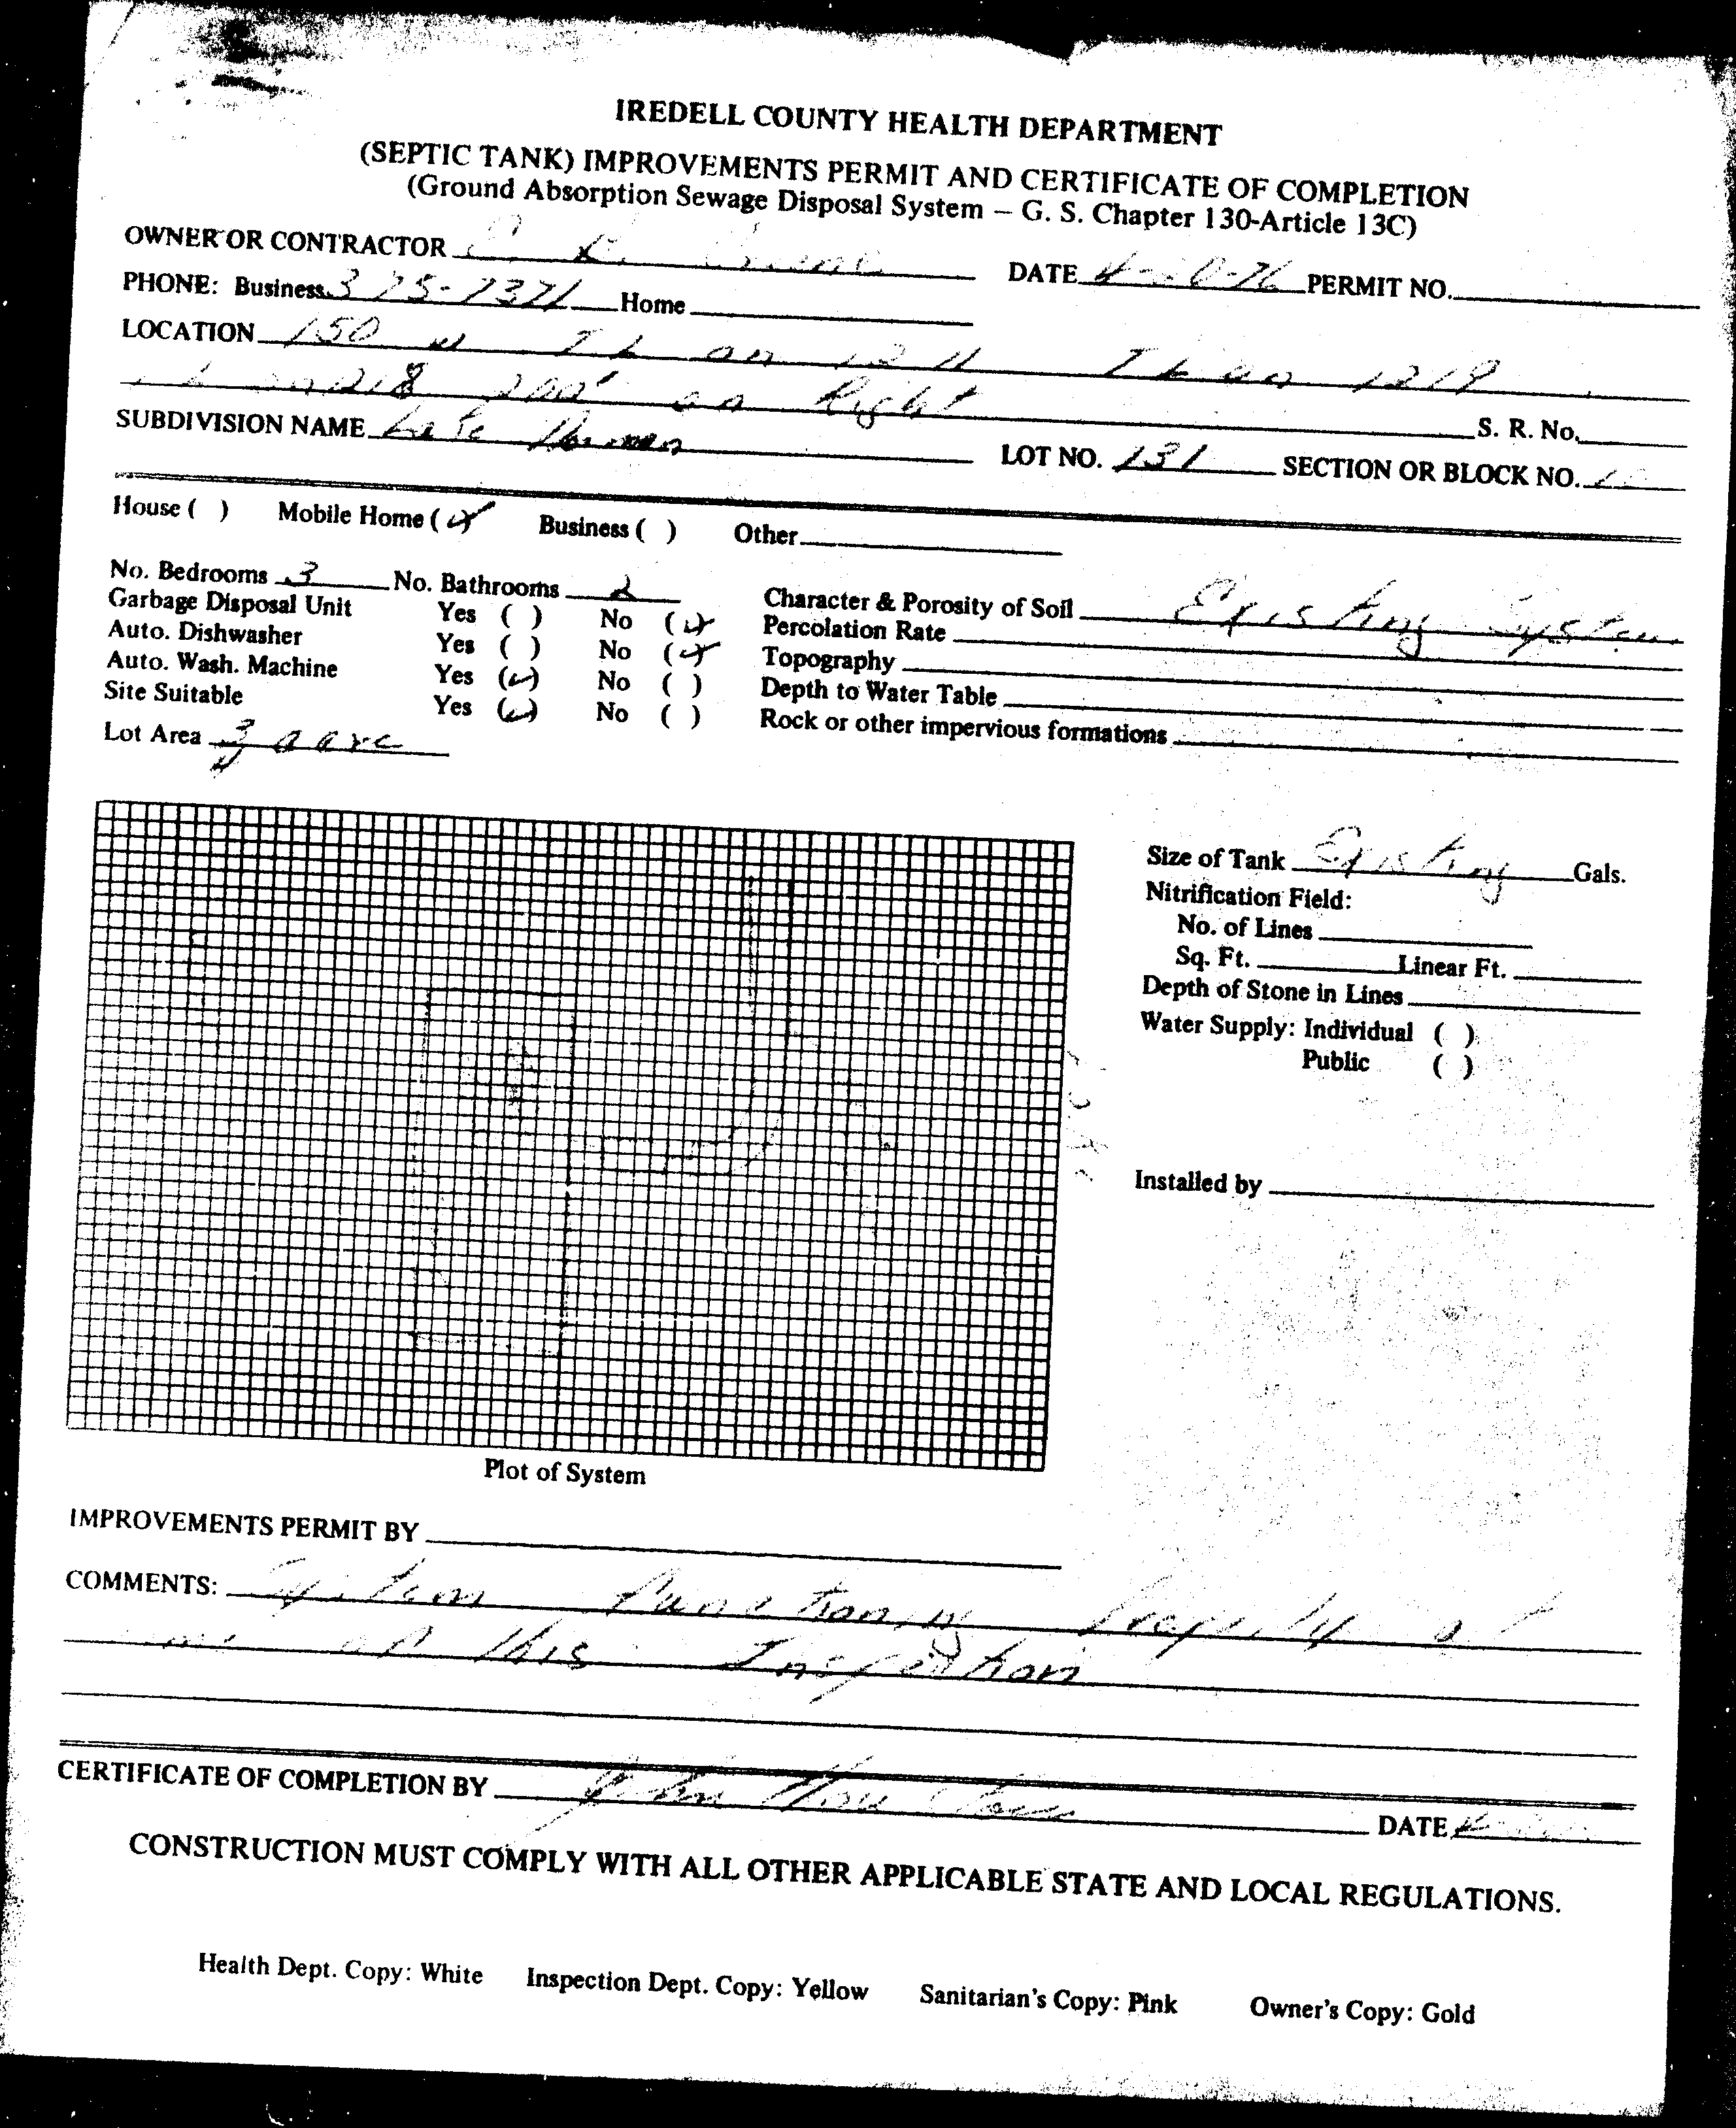 IREDELL COUNTY HEALTH DEPARTMENT
(SEPTIC TANK) IMPROVEMENTS PERMIT AND CERTIFICATE OF COMPLETION
(Ground Absorption Sewage Disposal System – G. S. Chapter 130-Article 13C)
OWNER OR CONTRACTOR DATE PERMIT NO.
PHONE: Business 375-7371 Home
LOCATION 150 W T L on 1211 T L on 1219
200' on Right S. R. No.
SUBDIVISION NAME Lake Norman LOT NO. 131 SECTION OR BLOCK NO.
House ( ) Mobile Home (✓) Business ( ) Other
No. Bedrooms 3 No. Bathrooms 2 Character & Porosity of Soil Existing System
Garbage Disposal Unit Yes ( ) No (✓) Percolation Rate
Auto. Dishwasher Yes ( ) No (✓) Topography
Auto. Wash. Machine Yes (✓) No ( ) Depth to Water Table
Site Suitable Yes (✓) No ( ) Rock or other impervious formations
Lot Area 3/4 acre
Size of Tank Existing Gals.
Nitrification Field:
No. of Lines
Sq. Ft. Linear Ft.
Depth of Stone in Lines
Water Supply: Individual ( )
Public ( )
Installed by
Plot of System
IMPROVEMENTS PERMIT BY
COMMENTS: System Functioning Properly at
time of this Inspection
CERTIFICATE OF COMPLETION BY John DATE
CONSTRUCTION MUST COMPLY WITH ALL OTHER APPLICABLE STATE AND LOCAL REGULATIONS.
Health Dept. Copy: White Inspection Dept. Copy: Yellow Sanitarian's Copy: Pink Owner's Copy: Gold